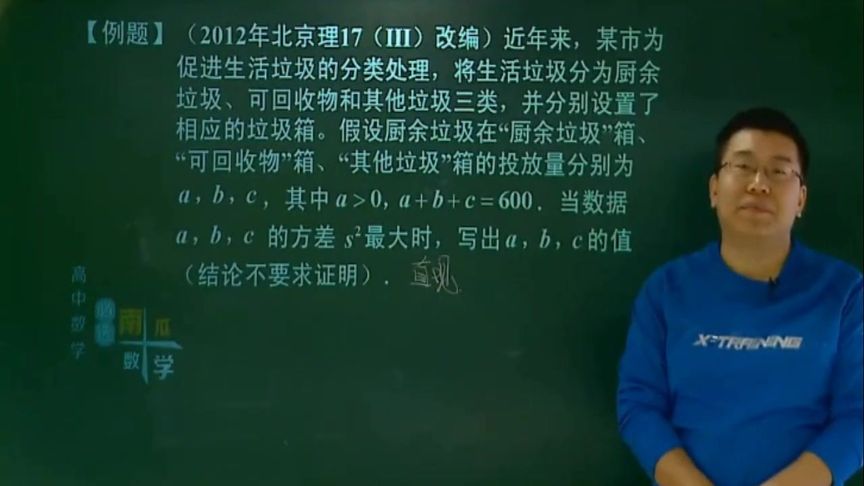 【例题】（2012年北京理17（III）改编）近年来，某市为
促进生活垃圾的分类处理，将生活垃圾分为厨余
垃圾、可回收物和其他垃圾三类，并分别设置了
相应的垃圾箱。假设厨余垃圾在“厨余垃圾”箱、
“可回收物”箱、“其他垃圾”箱的投放量分别为
a，b，c，其中a＞0，a+b+c=600．当数据
a，b，c 的方差 s²最大时，写出a，b，c的值
（结论不要求证明）．直观
高中数学
必修
南瓜
数学
X-TRAINING